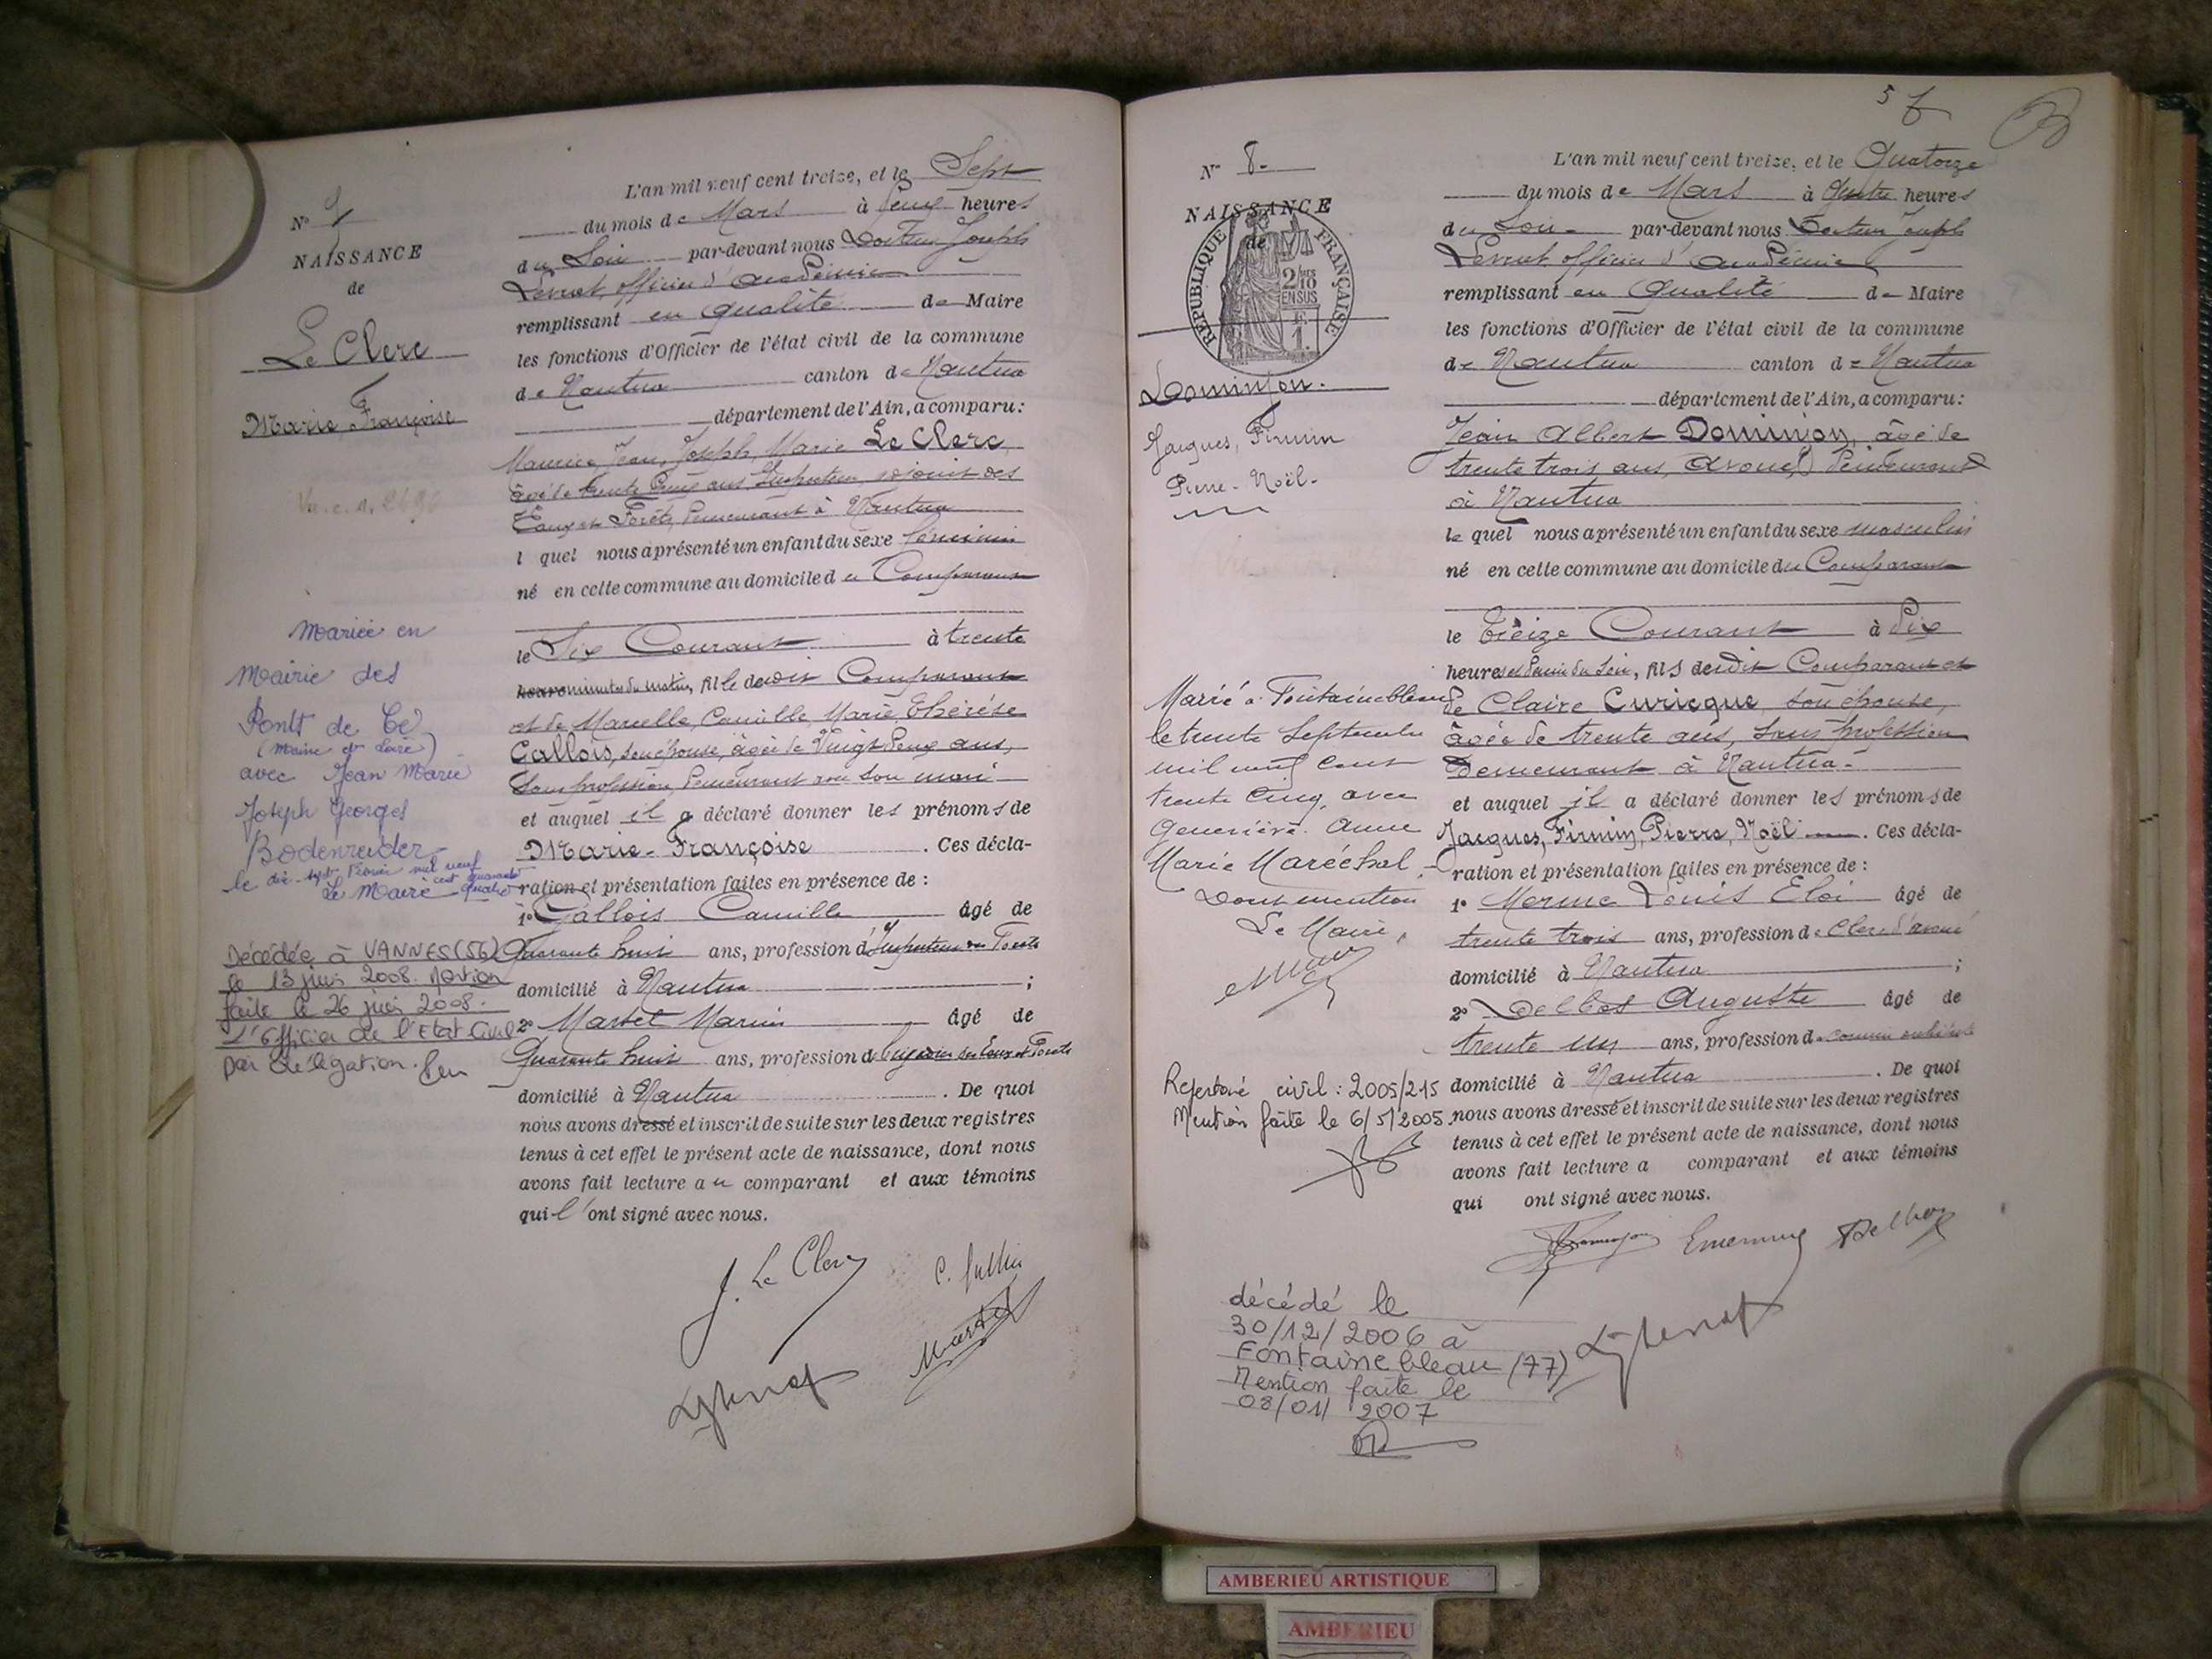 N° 7
NAISSANCE
de
Le Clerc
Marie Françoise
Mariée en
Mairie des
Ponts de Cé
(Maine et Loire)
avec Jean Marie
Joseph Georges
Bodenreider
le dix-sept Février mil neuf
cent quarante
Le Maire quatre
Décédée à VANNES (56)
le 13 juin 2008. Mention
faite le 26 juin 2008.
L'Officier de l'Etat Civil
par délégation.
L'an mil neuf cent treize, et le Sept
du mois de Mars à deux heures
du Soir par-devant nous Docteur Joseph
Levrat, officier d'académie
remplissant en qualité de Maire
les fonctions d'Officier de l'état civil de la commune
de Nantua canton de Nantua
département de l'Ain, a comparu:
Maurice, Jean, Joseph, Marie Le Clerc,
âgé de trente deux ans, Inspecteur adjoint des
Eaux et Forêts, demeurant à Nantua
l quel nous a présenté un enfant du sexe féminin
né en cette commune au domicile du Comparant
le Six Courant à trente
minutes du matin, fille dudit Comparant
et de Marcelle, Camille, Marie, Thérèse
Gallois, son épouse, âgée de Vingt deux ans,
Sans profession, demeurant avec son mari
et auquel il a déclaré donner les prénoms de
Marie-Françoise. Ces décla-
ration et présentation faites en présence de :
1° Gallois Camille âgé de
Quarante huit ans, profession d'Inspecteur des Forêts
domicilié à Nantua ;
2° Martet Marius âgé de
Quarante huit ans, profession de brigadier des Eaux et Forêts
domicilié à Nantua. De quoi
nous avons dressé et inscrit de suite sur les deux registres
tenus à cet effet le présent acte de naissance, dont nous
avons fait lecture au comparant et aux témoins
qui l'ont signé avec nous.
J. Le Clerc
Martet
57
N° 8
NAISSANCE
de
REPUBLIQUE FRANÇAISE
2/10
EN SUS
Dominjon.
Jacques, Firmin
Pierre-Noël-
Marié à Fontainebleau
le trente Septembre
mil neuf cent
trente cinq, avec
Geneviève Anne
Marie Maréchal,
Dont mention
Le Maire,
Répertoire civil : 2005/215
Mention faite le 6/5/2005.
L'an mil neuf cent treize, et le Quatorze
du mois de Mars à Quatre heures
du Soir par-devant nous Docteur Joseph
Levrat, officier d'académie
remplissant en Qualité de Maire
les fonctions d'Officier de l'état civil de la commune
de Nantua canton de Nantua
département de l'Ain, a comparu:
Jean Albert Dominjon, âgé de
trente trois ans, avoué, demeurant
à Nantua
le quel nous a présenté un enfant du sexe masculin
né en cette commune au domicile du Comparant
le treize Courant à Dix
heures et demie du Soir, fils dudit Comparant et
de Claire Curicque, son épouse,
âgée de trente ans, Sans profession
demeurant à Nantua-
et auquel il a déclaré donner les prénoms de
Jacques, Firmin, Pierre, Noël. Ces décla-
ration et présentation faites en présence de :
1° Merme Louis Eloi âgé de
trente trois ans, profession de Clerc d'avoué
domicilié à Nantua ;
2° Delbos Auguste âgé de
trente un ans, profession de commis
domicilié à Nantua. De quoi
nous avons dressé et inscrit de suite sur les deux registres
tenus à cet effet le présent acte de naissance, dont nous
avons fait lecture a comparant et aux témoins
qui ont signé avec nous.
décédé le
30/12/2006 à
Fontainebleau (77)
Mention faite le
08/01/2007
AMBERIEU ARTISTIQUE
AMBERIEU